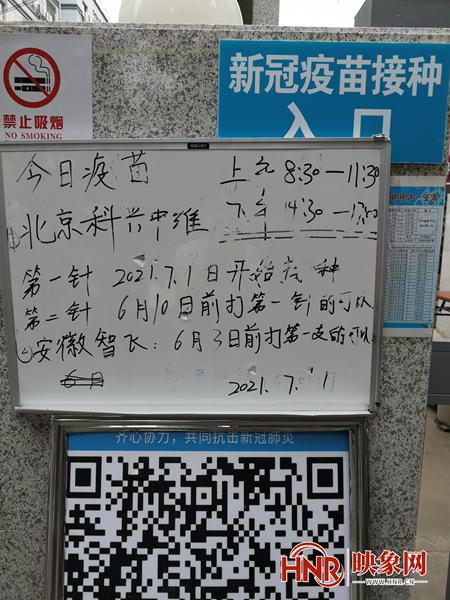 禁止吸烟
NO SMOKING
新冠疫苗接种
入口
今日疫苗
上午 8:30—11:30
下午 14:30—17:00
①北京科兴中维
第一针 2021.7.1日开始接种
第二针 6月10日前打第一针的可以
②安徽智飞：6月3日前打第一支的可以
2021.7.1
齐心协力，共同抗击新冠肺炎
HNR 映象网
WWW.HNR.CN